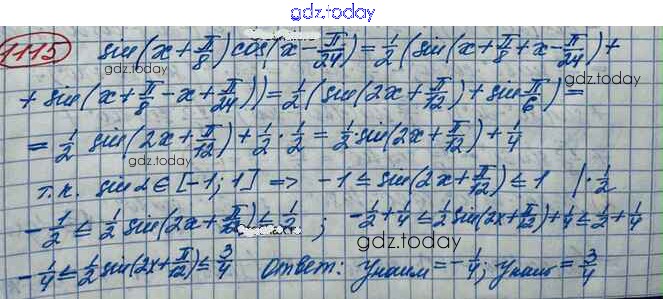 gdz.today
1115 sin(x+π/8)cos(x-π/24)=1/2(sin(x+π/8+x-π/24)+
+sin(x+π/8-x+π/24))=1/2(sin(2x+π/12)+sin π/6)=
gdz.today
=1/2 sin(2x+π/12)+1/2·1/2=1/2·sin(2x+π/12)+1/4
т.к. sin α∈[-1;1] => -1≤sin(2x+π/12)≤1 |·1/2
-1/2≤1/2 sin(2x+π/12)≤1/2; -1/2+1/4≤1/2 sin(2x+π/12)+1/4≤1/2+1/4
gdz.today
-1/4≤1/2 sin(2x+π/12)≤3/4 Ответ: yнаим=-1/4; yнаиб=3/4
gdz.today